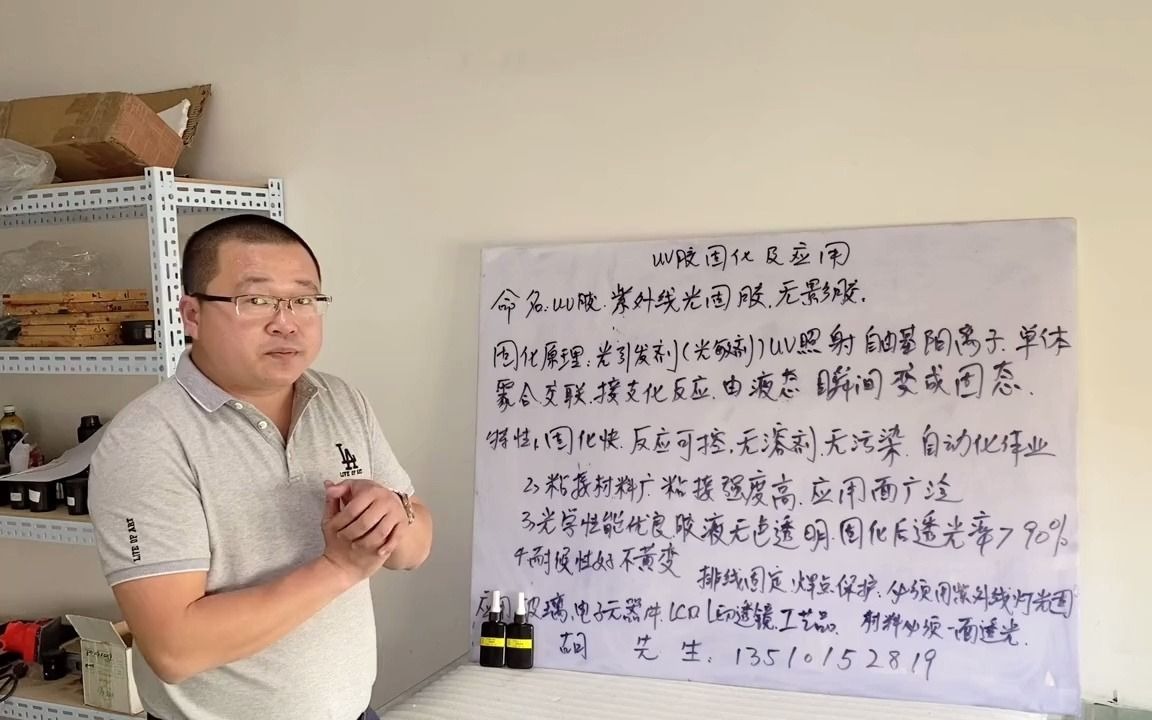 UV胶固化及应用
命名.UV胶.紫外线光固胶.无影胶.
固化原理:光引发剂(光敏剂)UV照射自由基阳离子.单体
聚合交联.接支化反应.由液态瞬间变成固态.
特性1,固化快.反应可控.无溶剂.无污染.自动化作业
2,粘接材料广.粘接强度高.应用面广泛
3,光学性能优良胶液无色透明.固化后透光率>90%
4.耐候性好不黄变
排线固定.焊点保护.必须用紫外线灯光固
应用玻璃.电子元器件.LCD LED透镜.工艺品. 材料必须一面透光.
胡先生:13510152819
LA
LIFE OF ART
LIFE OF ART